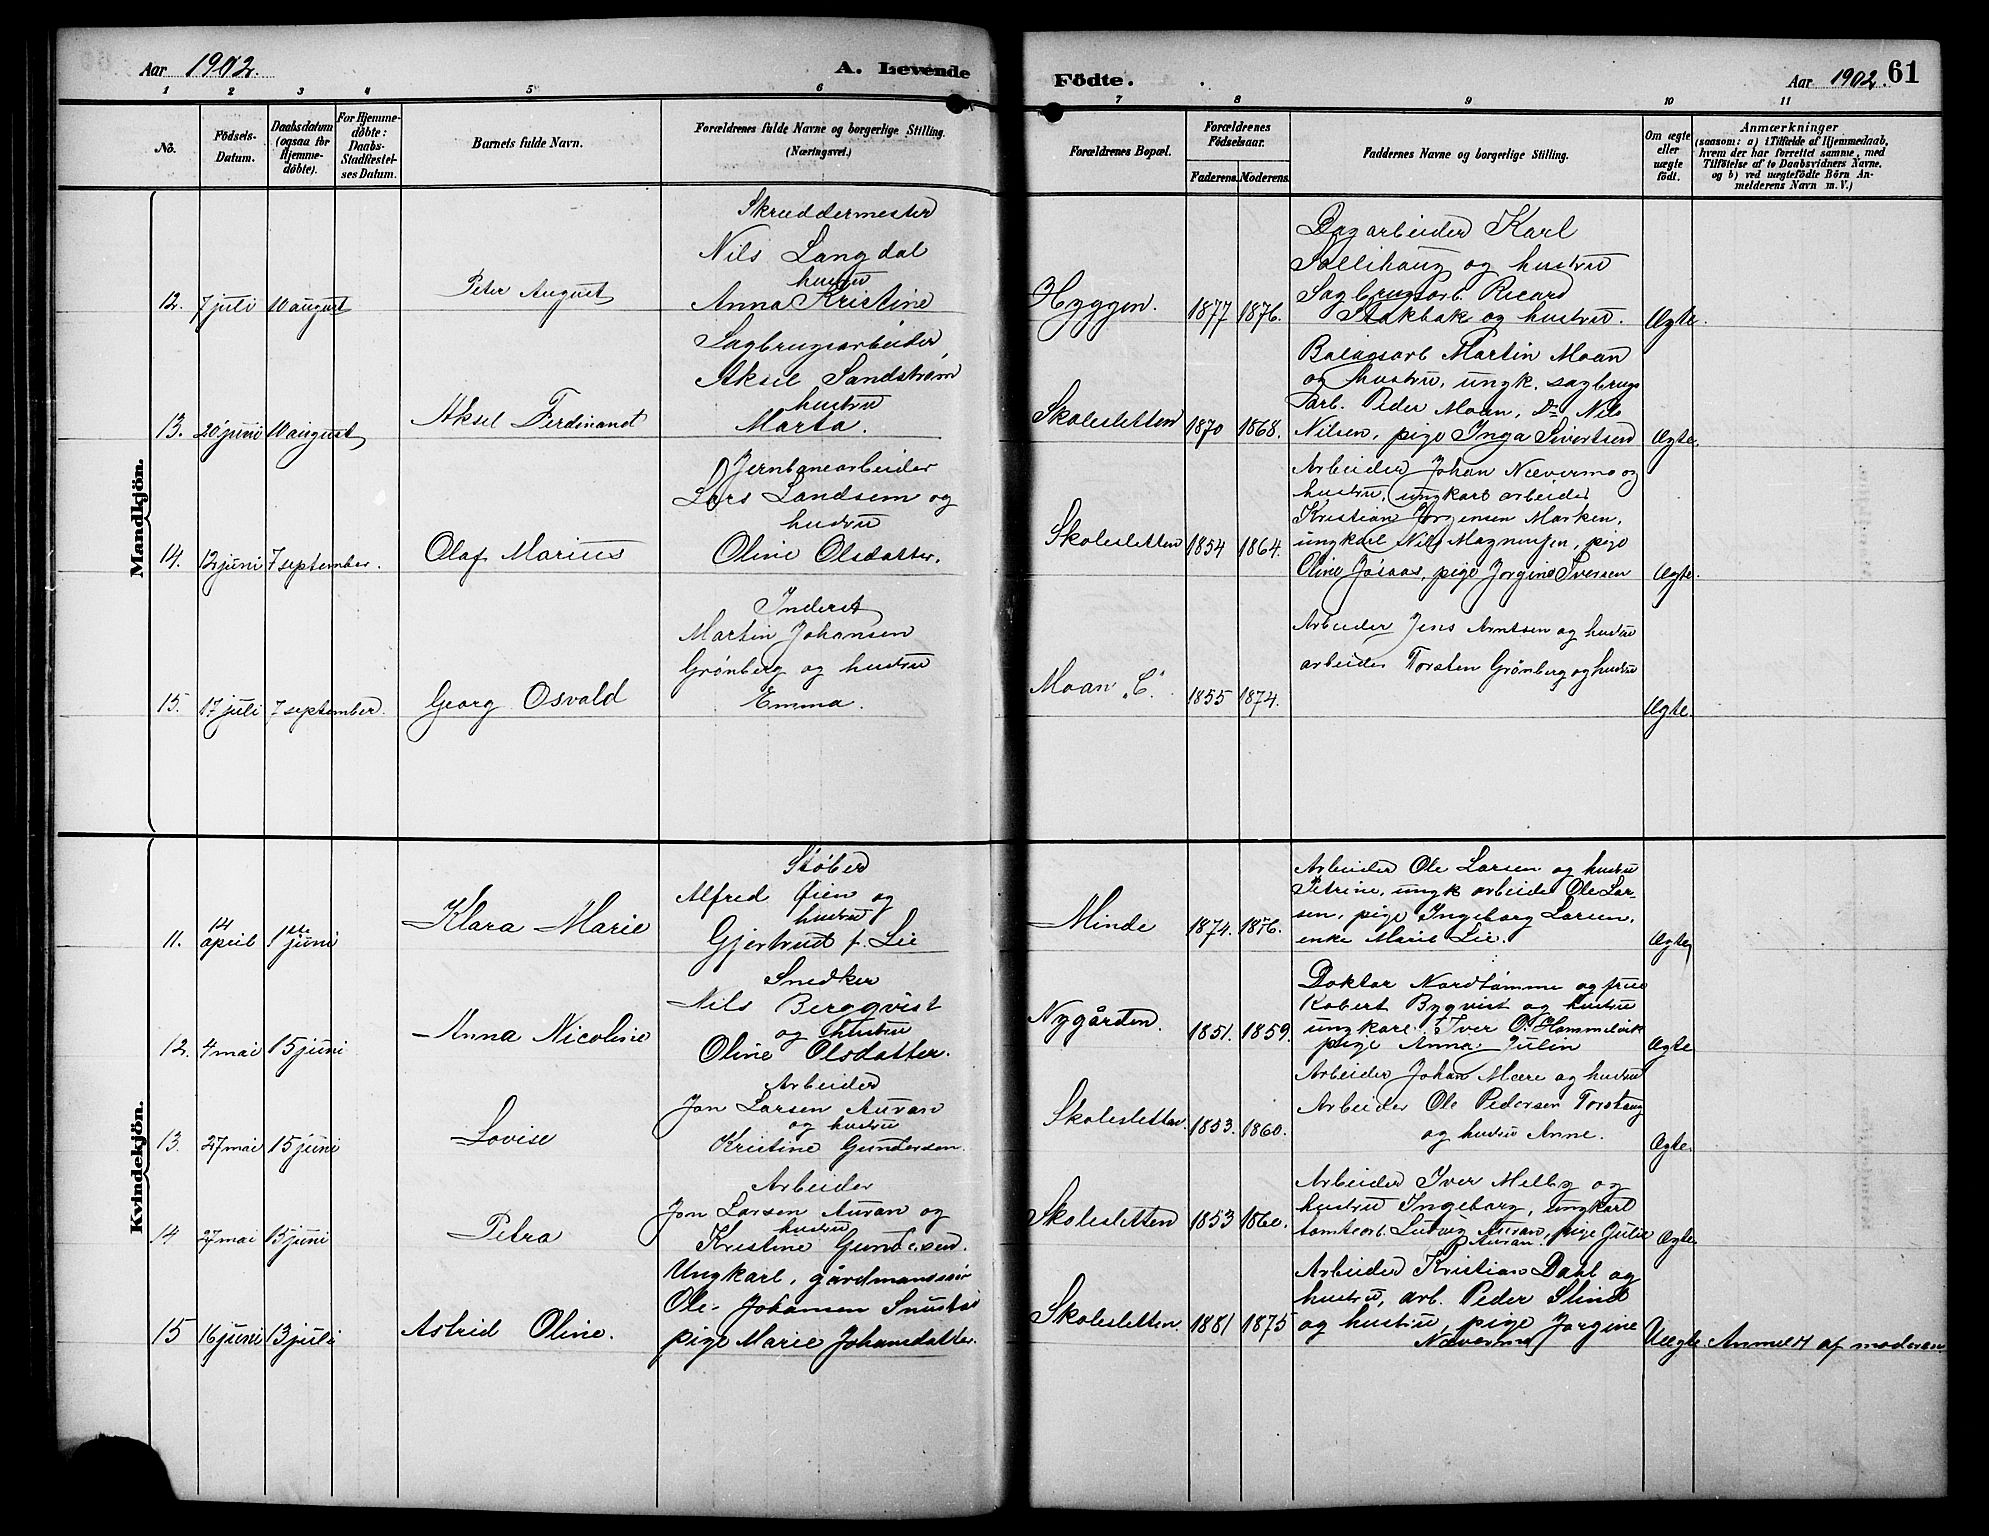 Aar 1902.
A. Levende
1 2 3 4 5 6
No.
Födsels-
Datum.
Daabsdatum
(ogsaa for
Hjemme-
döbte).
For Hjemme-
döbte:
Daabs-
Stadfæstel-
ses Datum.
Barnets fulde Navn.
Forældrenes fulde Navne og borgerlige Stilling.
(Næringsvei.)
Mandkjön.
Skræddermester
Nils Langdal
hustru
12. 7 juli 10 august Peter August Anna Kristine
Sagbrugsarbeider
Aksel Sandstrøm
hustru
13. 20 juni 10 august Aksel Ferdinand Marta.
Jernbanearbeider
Lars Landsem og
hustru
14. 12 juni 7 september. Olaf Marius Oline Olsdatter.
Inderst
Martin Johansen
Grønberg og hustru
15. 17 juli 7 september. Georg Osvald Emma.
Kvindekjön.
Støber
Alfred Øien og
hustru
11. 14 april 1ste juni Klara Marie Gjertrud f. Lie
Snedker
Nils Bergqvist
og hustru
12. 4 mai 15 juni Anna Nicoline Oline Olsdatter.
Arbeider
Jon Larsen Auran
og hustru
13. 27 mai 15 juni Lovise Kristine Gundersen.
Arbeider
Jon Larsen Auran og
hustru
14 27 mai 15 juni Petra Kristine Gundersen.
Ungkarl, gårdmanssøn
Ole Johansen
15 16 juni 13 juli Astrid Oline. pige Marie Johansdatter
Födte.
Aar 1902. 61
7 8 9 10 11
Forældrenes Bopæl.
Forældrenes
Födselsaar.
Faderens. Moderens.
Faddernes Navne og borgerlige Stilling.
Om ægte
eller
uægte
födt.
Anmærkninger
(saasom: a) i Tilfælde af Hjemmedaab,
hvem der har forrettet samme, med
Tilföielse af to Daabsvidners Navne.
og b) ved uægtefödte Börn An-
melderens Navn m. V.)
Dagarbeider Karl
Sollihaug og hustru
Sagbrugsarb. Ricard
Hyggen. 1877 1876. Stokbak og hustru. Ægte.
Martin Moan
og hustru, ungk. sagbrugs
arb. Peder Moan, Do Nils
Skolesletten 1870 1868. Nilsen, pige Inga Sivertsen Ægte.
Arbeider Johan Nævermo og
hustru, ungkarl arbeider
Kristian Jørgensen Marken,
Skolesletten 1854 1864. ungkarl Nils Magnussen, pige
Oline Jøsaas, pige Jorgine Iversen Ægte.
Arbeider Jens Arntsen og hustru
arbeider Torsten Grønberg og hustru
Moan "C." 1855 1874. Ægte.
Arbeider Ole Larsen og hustru
Petrine, ungk arbeide Ole Lar-
sen, pige Ingeborg Larsen,
Minde 1874. 1876. enke Marie Lie. Ægte
Doktor Nordtømme og frue
Robert Bygqvist og hustru
Nygården. 1851. 1859. ungkarl Iver O. Hammelvik
pige Anna Julin Ægte
Arbeider Johan Mære og hustru
Arbeider Ole Pedersen Torshaug
Skolesletten. 1853. 1860. og hustru Anne. Ægte.
Arbeider Iver Melby og
hustru Ingeborg, ungkarl
Skolesletten 1853 1860. tomtearb. Ludvig Auran, pige Julie
Auran. Ægte.
Arbeider Kristian Dahl og
hustru, arb. Peder Slind
Skolesletten. 1881 1875 og hustru, pige Jorgine
Nævermo Uægte. Anmeldt af moderen.